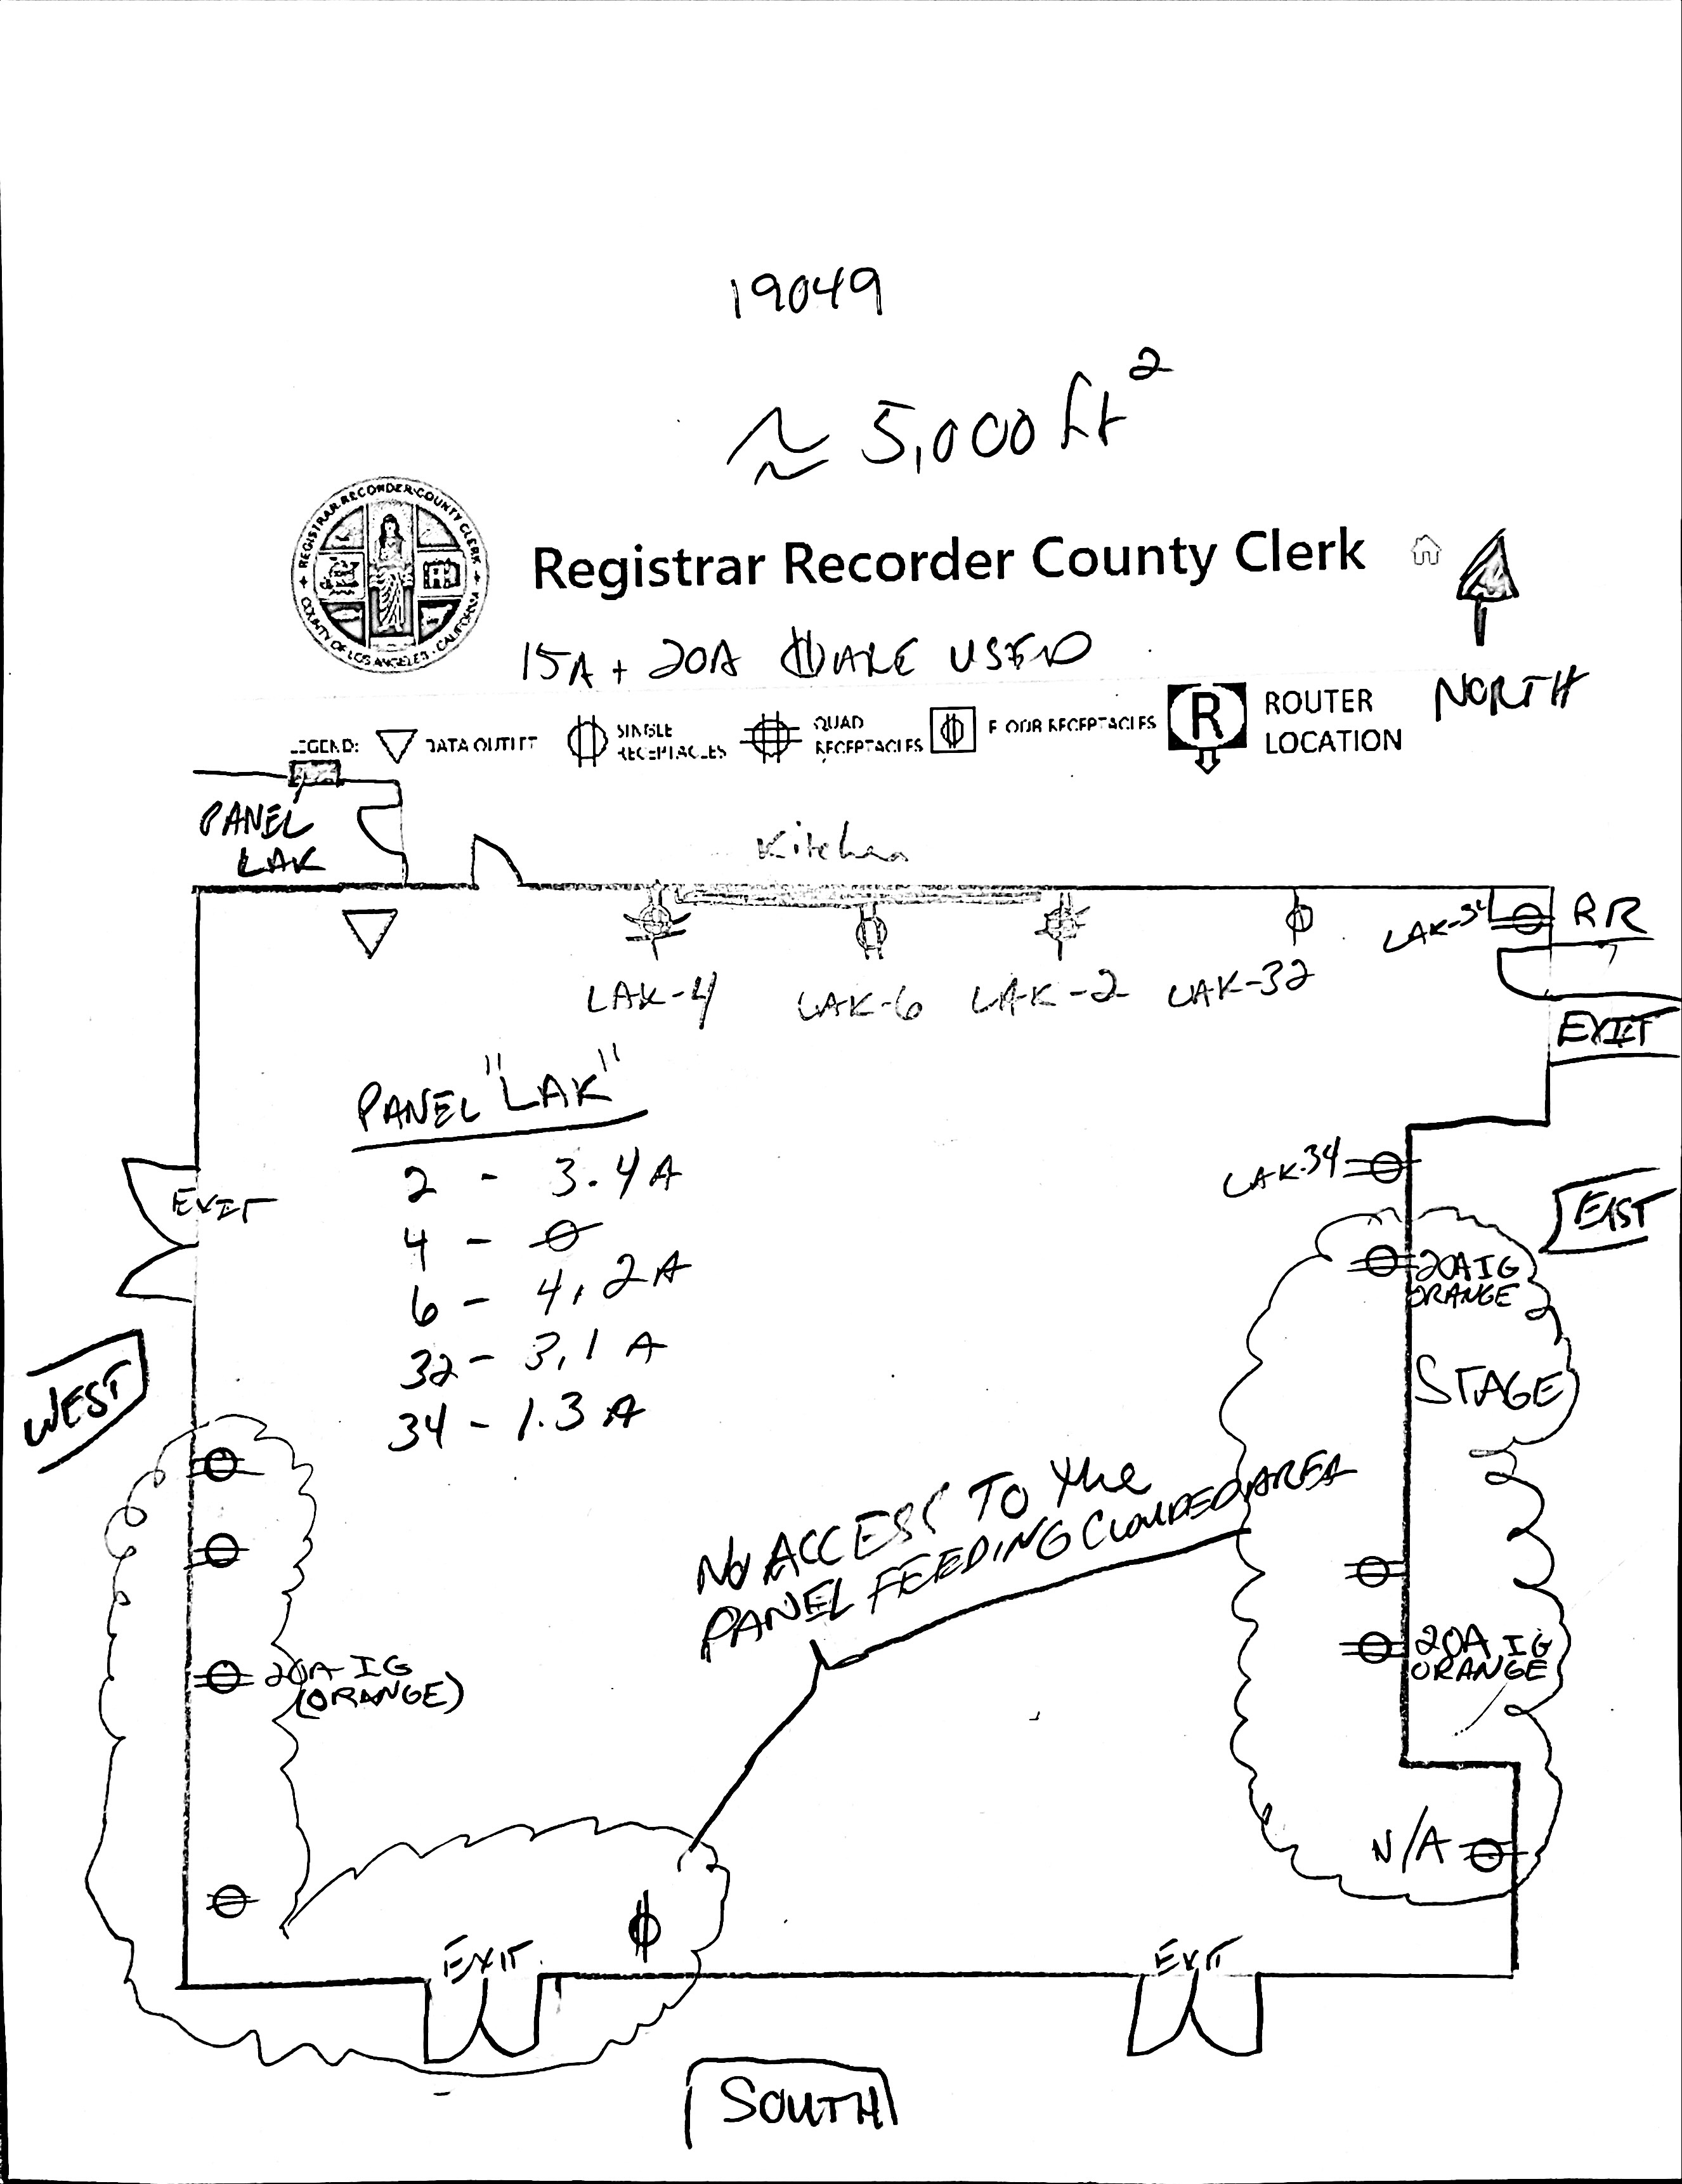 19049
≈ 5,000 ft²
REGISTRAR-RECORDER/COUNTY CLERK
COUNTY OF LOS ANGELES - CALIFORNIA
Registrar Recorder County Clerk
15A + 20A ARE USED
NORTH
LEGEND:
DATA OUTLET
SINGLE
RECEPTACLES
QUAD
RECEPTACLES
FLOOR RECEPTACLES
R
ROUTER
LOCATION
PANEL
LAK
Kitchen
LAK-34
RR
LAK-4
LAK-6
LAK-2
LAK-32
EXIT
PANEL "LAK"
2 - 3.4A
4 - Ø
6 - 4.2A
32 - 3.1 A
34 - 1.3 A
EXIT
LAK-34
EAST
20A IG
ORANGE
STAGE
WEST
NO ACCESS TO the
PANEL FEEDING CLOUDED AREA
20A IG
(ORANGE)
20A IG
ORANGE
N/A
EXIT
EXIT
SOUTH